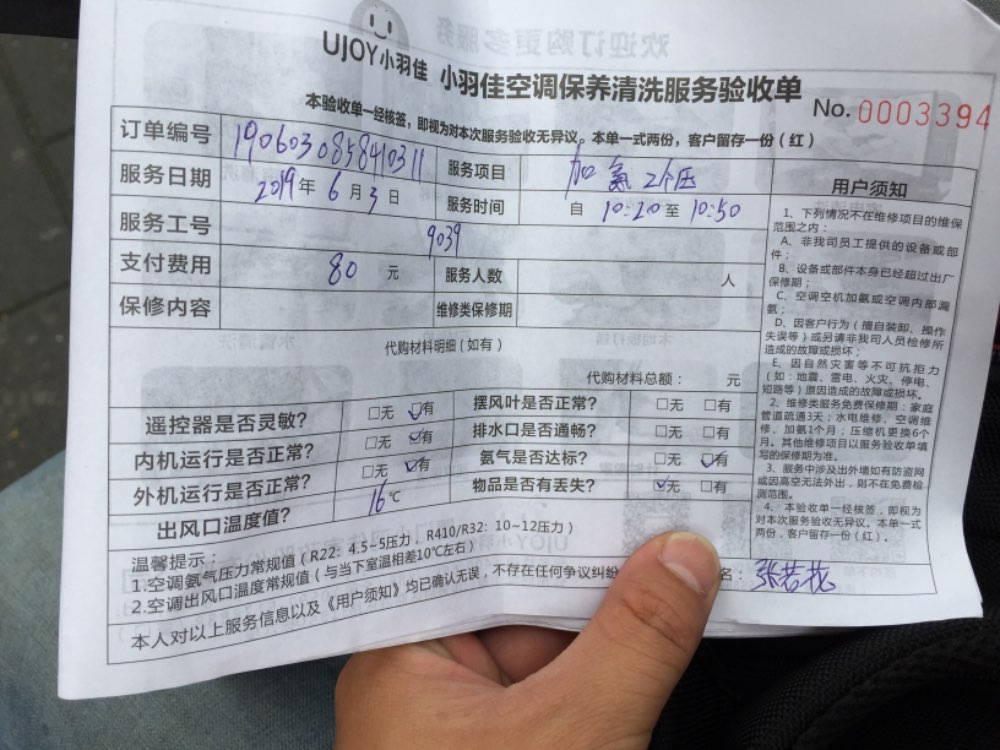 UJOY小羽佳 小羽佳空调保养清洗服务验收单
No. 0003394
本验收单一经核签，即视为对本次服务验收无异议。本单一式两份，客户留存一份（红）
订单编号 190603085840311 服务项目 加氨2个压
服务日期 2019年6月3日 服务时间 自 10:20 至 10:50
服务工号 9039
支付费用 80 元 服务人数 人
保修内容 维修类保修期
代购材料明细（如有）
代购材料总额： 元
遥控器是否灵敏？ □无 ☑有 摆风叶是否正常？ □无 □有
内机运行是否正常？ □无 ☑有 排水口是否通畅？ □无 □有
外机运行是否正常？ □无 ☑有 氨气是否达标？ □无 ☑有
出风口温度值？ 16℃ 物品是否有丢失？ ☑无 □有
温馨提示：
1.空调氨气压力常规值（R22：4.5~5压力，R410/R32：10~12压力）
2.空调出风口温度常规值（与当下室温相差10℃左右）
本人对以上服务信息以及《用户须知》均已确认无误，不存在任何争议纠纷
名：
用户须知
1、下列情况不在维修项目的维保
范围之内：
A、非我司员工提供的设备或部
件；
B、设备或部件本身已经超过出厂
保修期；
C、空调空机加氨或空调内部漏
氨；
D、因客户行为（擅自装卸、操作
失误等）或另请非我司人员检修所
造成的故障或损坏；
E、因自然灾害等不可抗拒力
（如：地震、雷电、火灾、停电、
短路等）原因造成的故障或损坏。
2、维修类服务免费保修期：家庭
管道疏通3天；水电维修、空调维
修、加氨1个月；压缩机更换6个
月。其他维修项目以服务验收单填
写的保修期为准。
3、服务中涉及出外墙如有防盗网
或因高空无法外出，则不在免费检
测范围。
4、本验收单一经核签，即视为
对本次服务验收无异议。本单一式
两份，客户留存一份（红）。